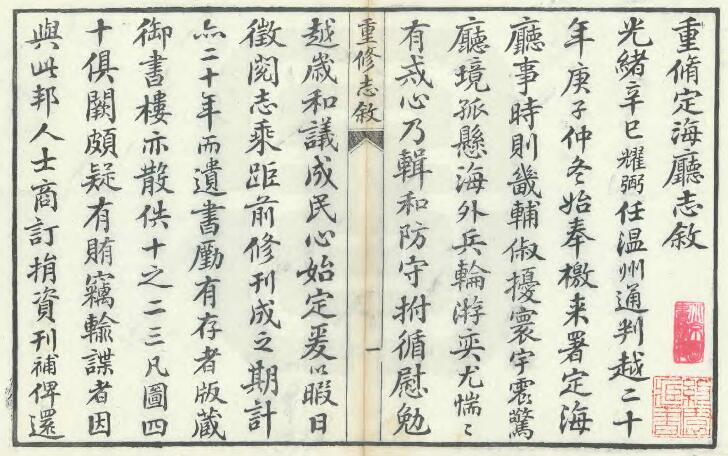 重脩定海廳志敘
光緒辛巳耀弼任温州通判越二十
年庚子仲冬始奉檄来署定海
廳事時則畿輔俶擾寰宇震驚
廳境孤懸海外兵輪游奕尤惴〻
有戎心乃輯和防守拊循慰勉
重修志敘
一
越歲和議成民心始定爰以暇日
徵閱志乘距前修刊成之期計
二十年而遺書尠有存者版藏
御書樓亦散佚十之二三凡圖四
十俱闕頗疑有賄竊輸諜者因
與此邦人士商訂捐資刊補俾還